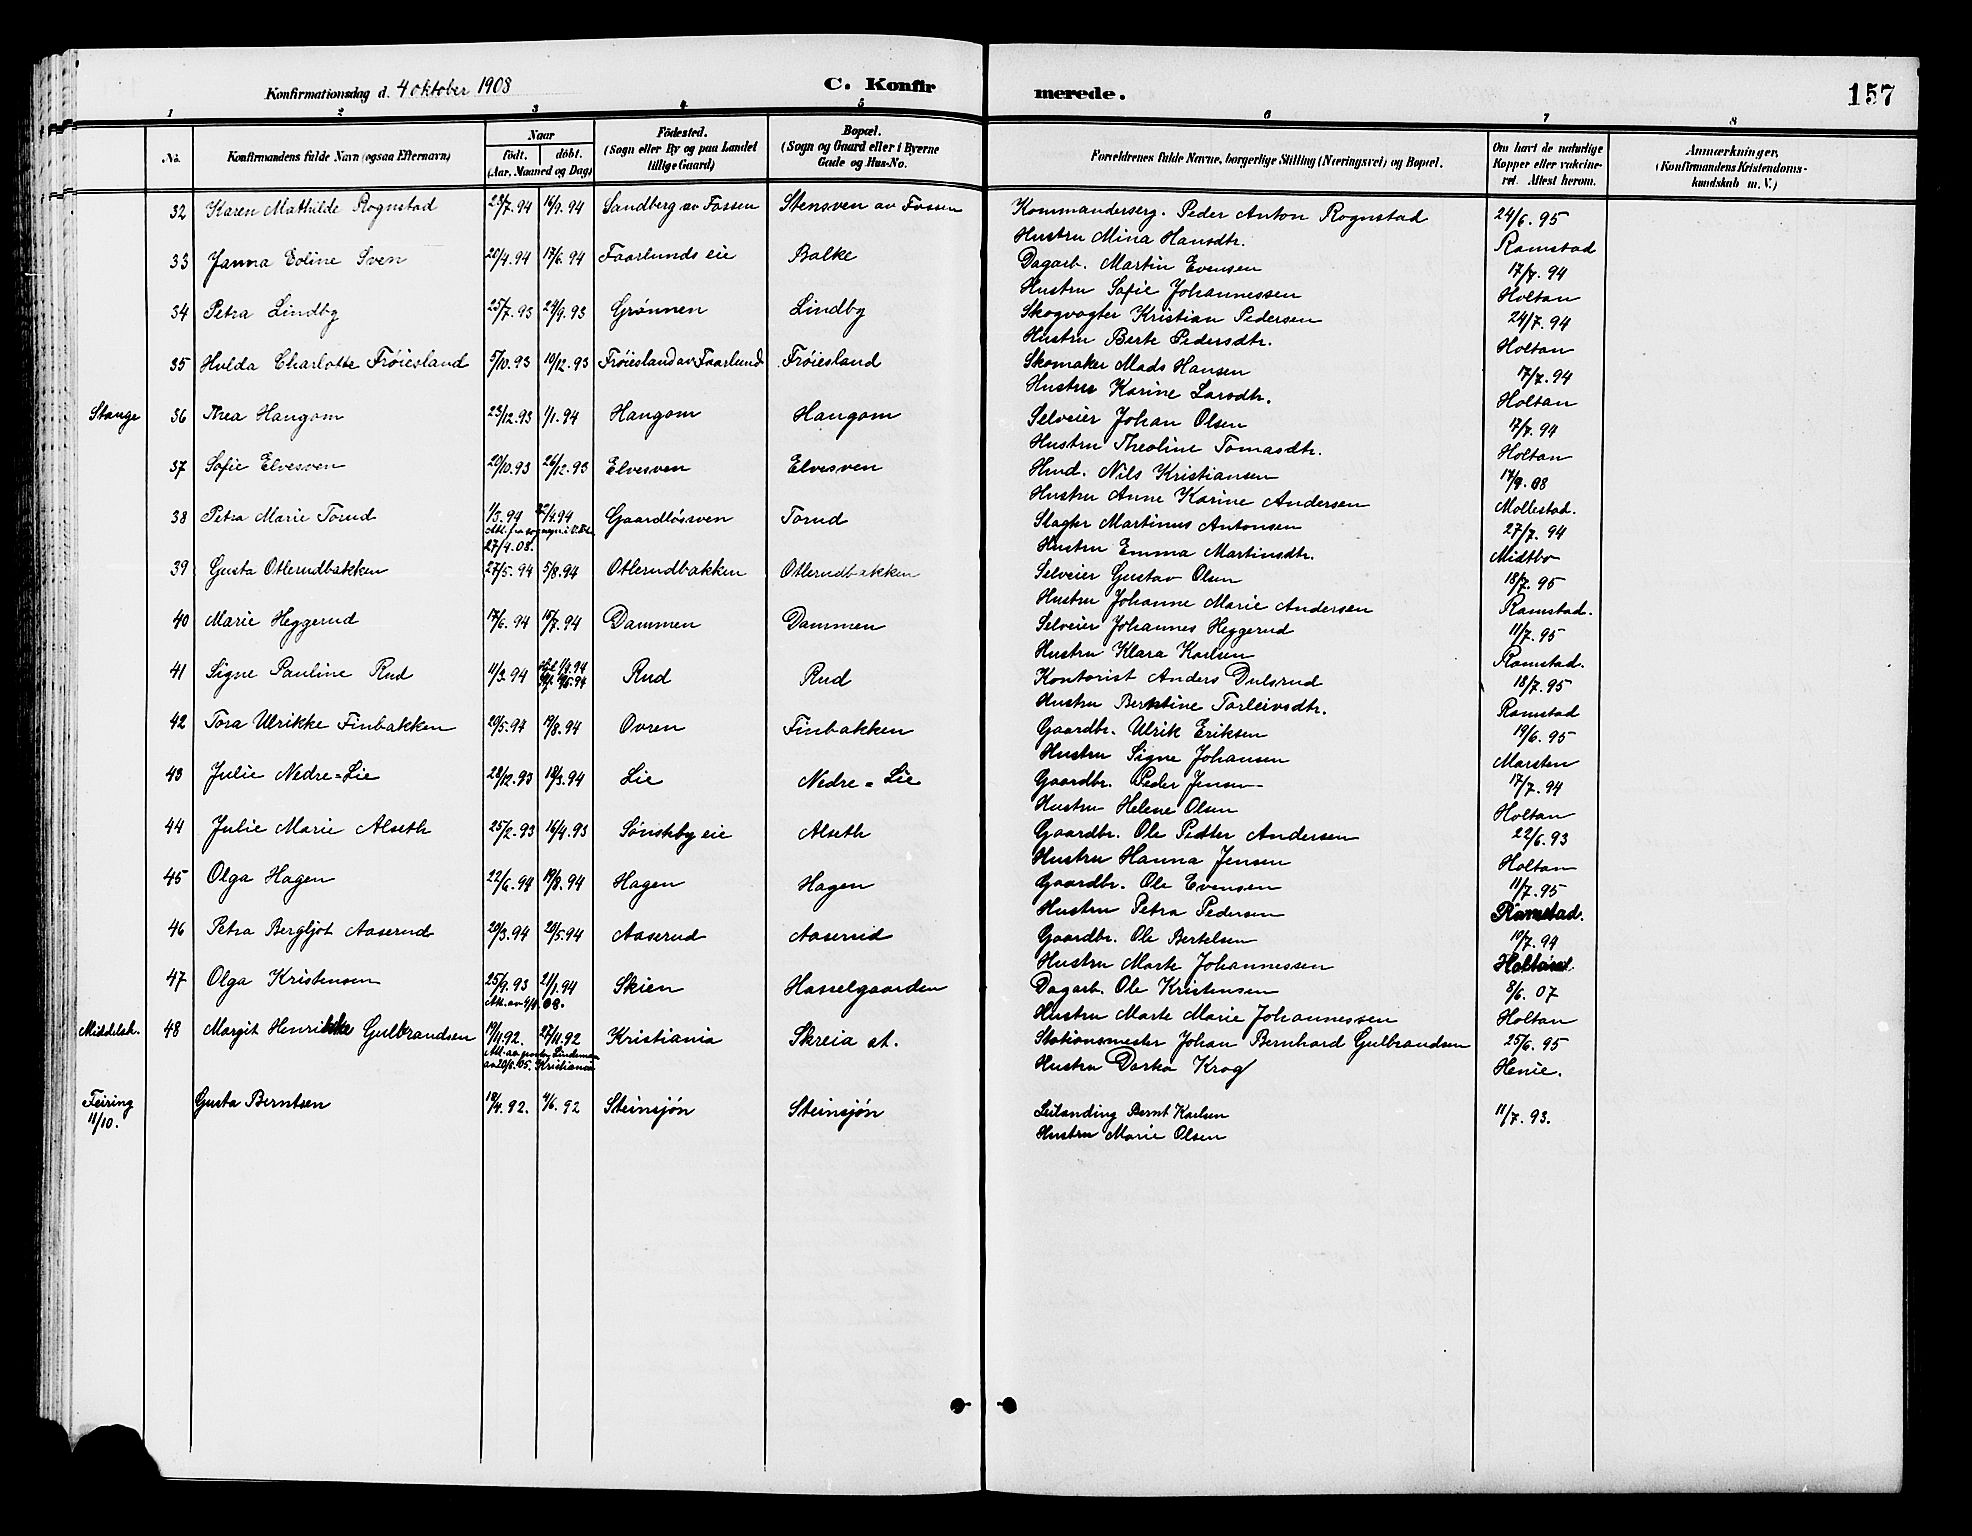 Konfirmationsdag d. 4 oktober 1908
C. Konfirmerede.
157
1 2 3 4 5 6 7 8
No.
Konfirmandens fulde Navn (ogsaa Efternavn)
Naar
født. døbt.
(Aar, Maaned og Dag)
Fødested.
(Sogn eller By og paa Landet
tillige Gaard)
Bopæl.
(Sogn og Gaard eller i Byerne
Gade og Hus-No.
Forældrenes fulde Navne, borgerlige Stilling (Næringsvei) og Bopæl.
Om havt de naturlige
Kopper eller vakcine-
ret. Attest herom.
Anmærkninger,
(Konfirmandens Kristendoms-
kundskab m. V.)
32 Karen Mathilde Rognstad 23/7.94 16/9.94 Sandberg av Fossen Stensven av Fossen Kommanderserg. Peder Anton Rognstad 24/6.95
Hustru Mina Hansdtr. Ramstad
33 Janna Edine Sven 20/4.94 17/6.94 Faarlunds eie Balke Dagarb. Martin Evensen 17/7.94
Hustru Sofie Johannessen Holtan
34 Petra Lindby 25/7.93 24/9.93 Grønnen Lindby Skogvogter Kristian Pedersen 24/7.94
Hustru Berte Pedersdtr. Holtan
35 Hulda Charlotte Frøiesland 5/10.93 10/12.93 Frøiesland av Faarlund Frøiesland Skomaker Mads Hansen 17/7.94
Hustru Karine Larsdtr. Holtan
Stange 36 Thea Hangom 23/12.93 1/1.94 Hangom Hangom Selveier Johan Olsen 17/7.94
Hustru Theoline Tomasdtr. Holtan
37 Sofie Elvesven 20/10.93 26/12.93 Elvesven Elvesven Hmd. Nils Kristiansen 17/9.08
Hustru Anne Karine Andersen Mollestad.
38 Petra Marie Torud 1/3.94 22/4.94 Gaardløsven Torud Slagter Martinus Antonsen 27/7.94
27/4.08. Hustru Emma Martinsdtr. Midtbo
39 Gusta Otlerudbakken 27/5.94 5/8.94 Otlerudbakken Otlerudbakken Selveier Gustav Olsen 18/7.95
Hustru Johanne Marie Andersen Ramstad.
40 Marie Heggerud 17/6.94 15/7.94 Dammen Dammen Selveier Johannes Heggerud 11/7.95
Hustru Klara Karlsen Ramstad.
41 Signe Pauline Rud 11/3.94 Rud Rud Kontorist Anders Dulsrud 18/7.95
Hustru Berntine Torleivsdtr. Ramstad
42 Tora Ulrikke Finbakken 20/5.94 19/8.94 Ovren Finbakken Gaardbr. Ulrik Eriksen 19/6.95
Hustru Signe Johansen Marsten
43 Julie Nedre-Lie 28/12.93 18/3.94 Lie Nedre-Lie Gaardbr. Peder Jensen 17/7.94
Hustru Helene Olsen Holtan
44 Julie Marie Alseth 25/2.93 16/4.93 Sønsteby eie Alseth Gaardbr. Ole Petter Andersen 22/6.93
Hustru Hanna Jensen Holtan
45 Olga Hagen 22/6.94 19/8.94 Hagen Hagen Gaardbr. Ole Evensen 11/7.95
Hustru Petra Pedersen Ramstad.
46 Petra Bergljot Aaserud 20/3.94 20/5.94 Aaserud Aaserud Gaardbr. Ole Bertelsen 10/7.94
Hustru Marte Johannessen
47 Olga Kristensen 25/9.93 21/1.94 Skien Hasselgaarden Dagarb. Ole Kristensen 8/6.07
Hustru Marte Marie Johannessen Holtan
Middelsk. 48 Margit Henrikke Gulbrandsen 19/11.92. 27/11.92 Kristiania Skreia st. Stationsmester Johan Bernhard Gulbrandsen 25/6.95
Kristiania Hustru Dorka Krog Henie.
Feiring Gusta Berntsen 18/4.92. 4/6.92 Steinsjøn Steinsjøn Leilending Bernt Karlsen 11/7.93.
11/10. Hustru Marie Olsen